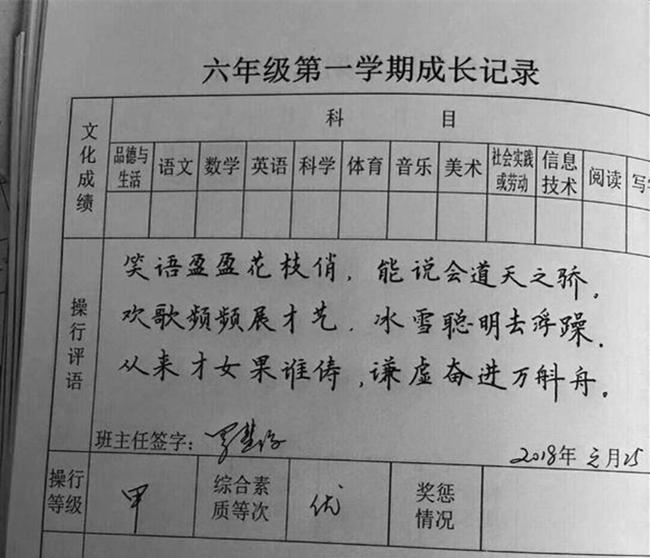 六年级第一学期成长记录
文化成绩
科 目
品德与生活 语文 数学 英语 科学 体育 音乐 美术 社会实践或劳动 信息技术 阅读
操行评语
笑语盈盈花枝俏，能说会道天之骄。
欢歌频频展才艺，冰雪聪明去浮躁。
从来才女果谁俦，谦虚奋进万斛舟。
班主任签字：
2018年元月25
操行等级 甲 综合素质等次 优 奖惩情况